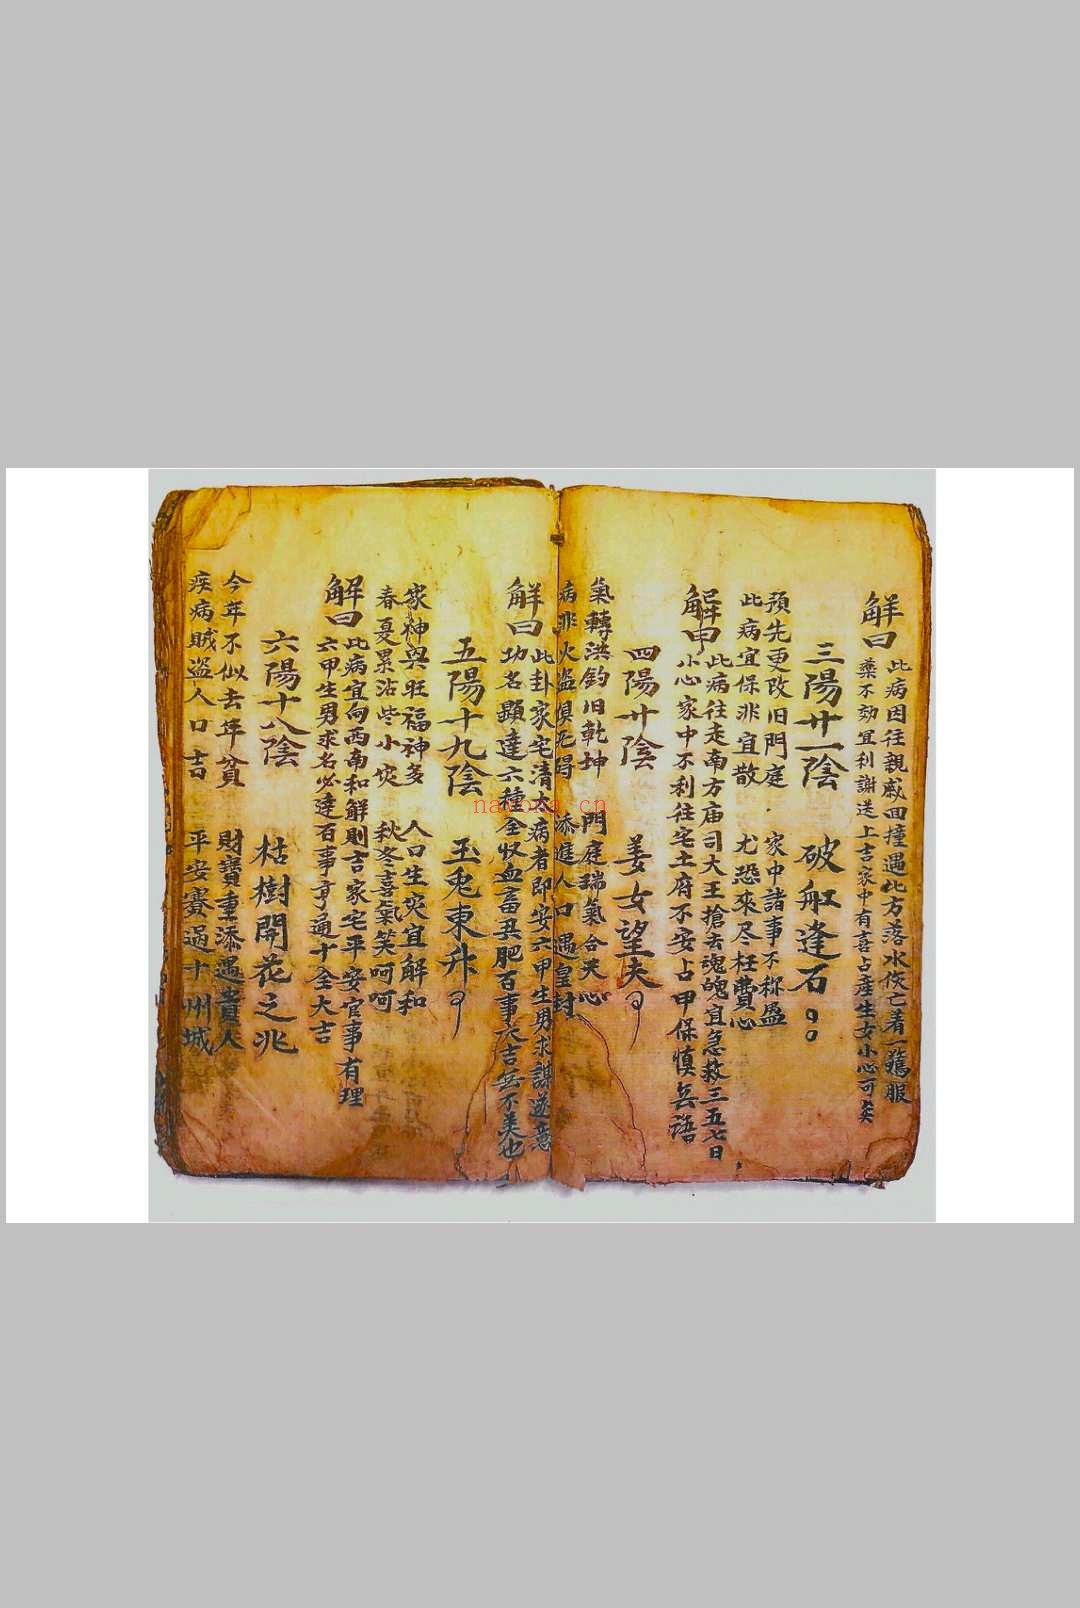 解曰
此病因往親戚回撞遇此方落水傷亡着一驚服
藥不効宜利謝送上吉家中有喜占產生女小心可矣
三陽廿一陰 破舡逢石
預先更改旧門庭 家中諸事不称盈
此病宜保非宜散 尤恐來尽枉費心
解曰
此病往走南方庙司大王搶去魂魄宜急救三五七日
小心家中不利往宅土府不安占甲保慎兵語
四陽廿陰 姜女望夫
氣轉洪鈞旧乾坤 門庭瑞氣合天心
病非火盜俱无碍 添進人口遇皇封
解曰
此卦家宅清大病者即安六甲生男求謀遂意
功名顯達六種全收血畜丑肥百事大吉无不美也
五陽十九陰 玉兔東升
家神興旺福神多 人口生灾宜解和
春夏累沾些小灾 秋冬喜氣笑呵呵
解曰
此病宜向西南和解則吉家宅平安官事有理
六甲生男求名必達百事亨通十全大吉
六陽十八陰 枯樹開花之兆
今年不似去年貧 財寶重添遇貴人
疾病賊盜人口吉 平安賽過十州城
nayona.cn